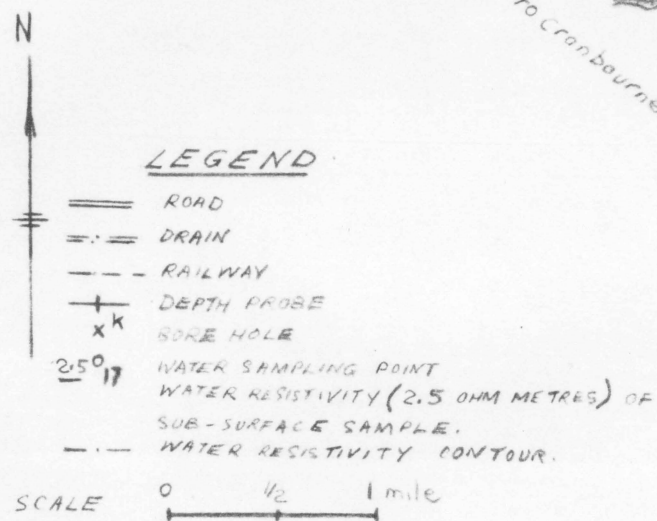 N
To Cranbourne
LEGEND
ROAD
DRAIN
RAILWAY
DEPTH PROBE
x K BORE HOLE
2.5 17 WATER SAMPLING POINT
WATER RESISTIVITY (2.5 OHM METRES) OF
SUB-SURFACE SAMPLE.
WATER RESISTIVITY CONTOUR.
SCALE 0 1/2 1 mile